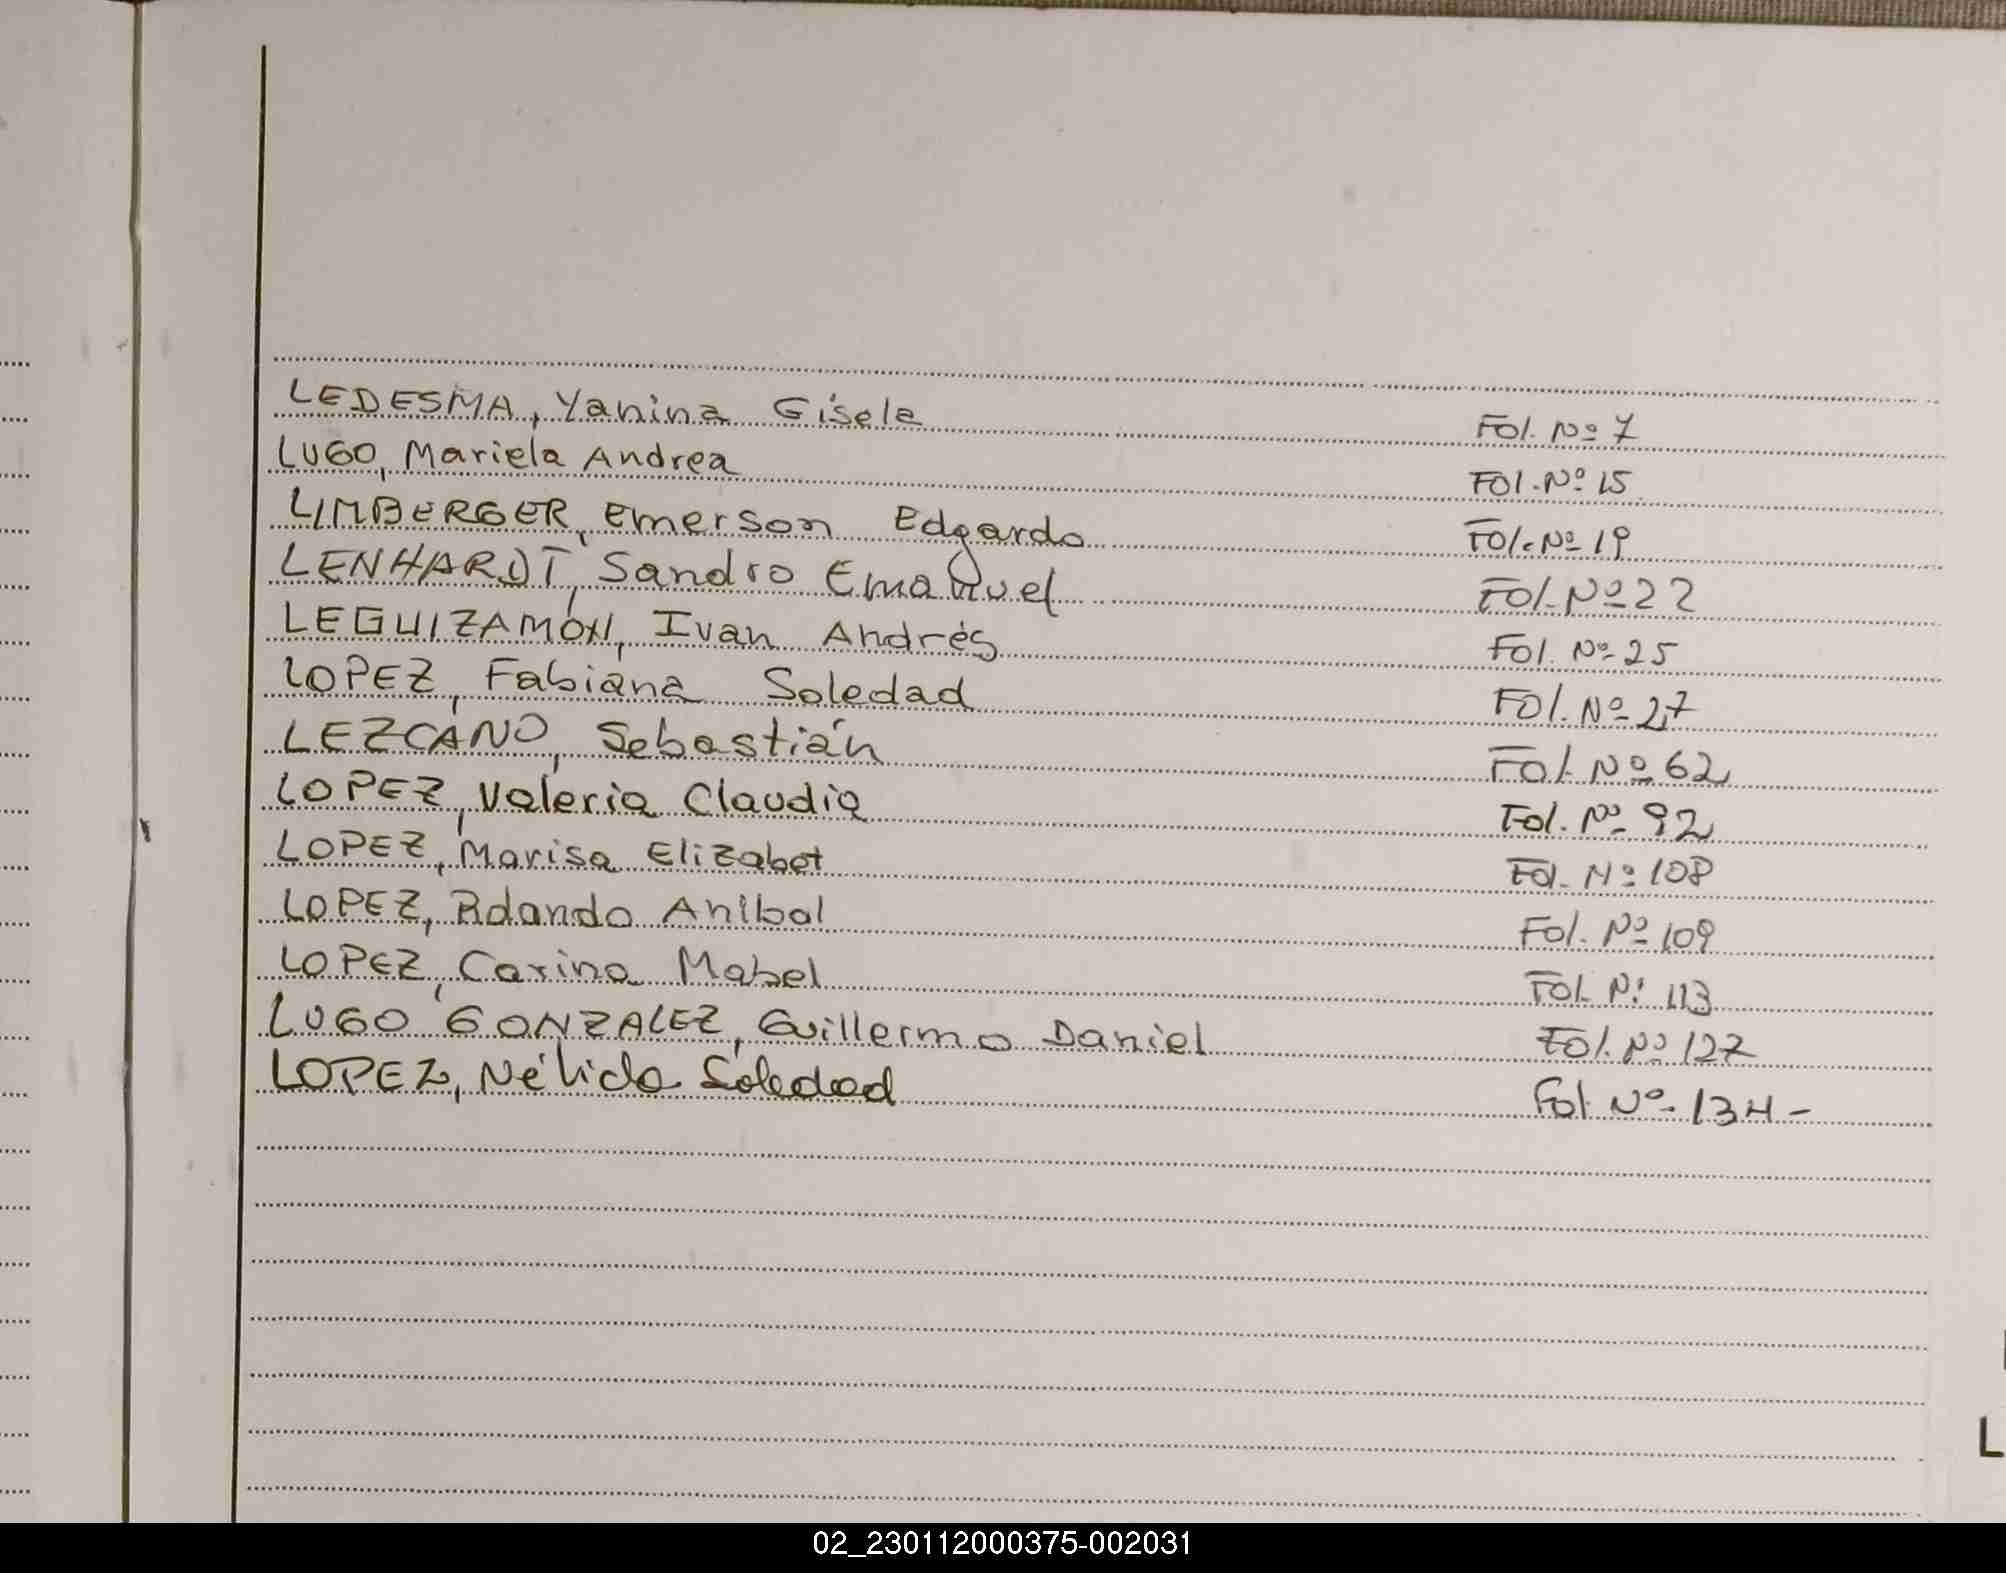 LEDESMA, Yanina Gisele Fol. Nº 7
LUGO, Mariela Andrea Fol. Nº 15
LIMBERGER, Emerson Edgardo Fol. Nº 19
LENHARDT, Sandro Emanuel Fol. Nº 22
LEGUIZAMÓN, Ivan Andrés Fol. Nº 25
LOPEZ, Fabiana Soledad Fol. Nº 27
LEZCANO, Sebastián Fol. Nº 62
LOPEZ, Valeria Claudia Fol. Nº 92
LOPEZ, Marisa Elizabet Fol. Nº 108
LOPEZ, Rolando Anibal Fol. Nº 109
LOPEZ, Carina Mabel Fol. Nº 113
LUGO GONZALEZ, Guillermo Daniel Fol. Nº 127
LOPEZ, Nélida Soledad Fol. Nº 134-
L
02_230112000375-002031